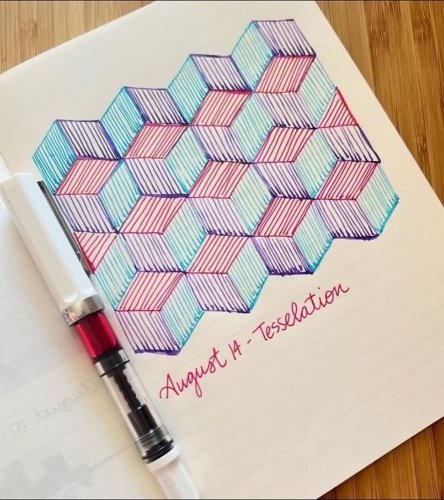 August 14 - Tesselation